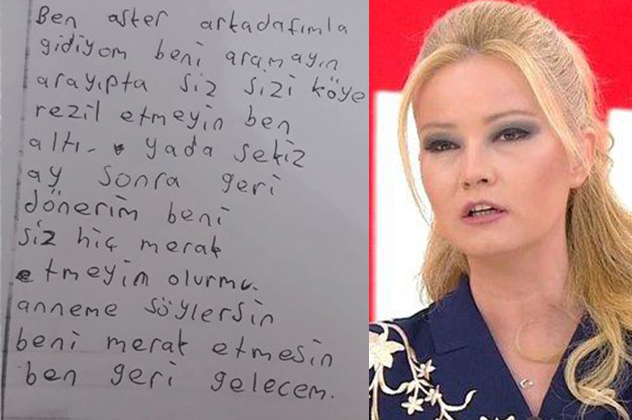 Ben asker arkadaşımla
gidiyom beni aramayın
arayıpta siz sizi köye
rezil etmeyin ben
altı. yada sekiz
ay sonra geri
dönerim beni
siz hiç merak
etmeyin olurmu.
anneme söylersin
beni merak etmesin
ben geri gelecem.